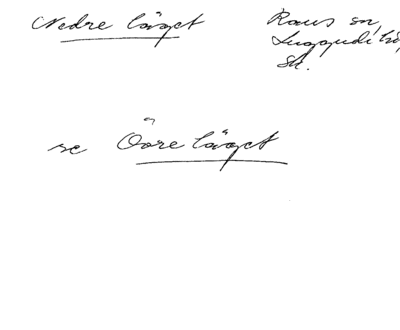 Nedre läget
Raus sn,
Luggude hd,
Sk.
se Övre läget